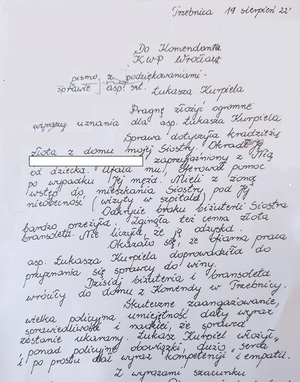 Trzebnica 19 sierpień 22!
Do Komendanta
K.W.P Wrocław
pismo z podziękowaniami -
sprawie asp. szt. Łukasza Kurpiela
Pragnę złożyć ogromne
wyrazy uznania dla asp. Łukasza Kurpiela
Sprawa dotyczyła kradzieży
złota z domu mojej Siostry. Okradł Ją
zaprzyjaźniony z Nią
od dziecka. Ufała mu, oferował pomoc
po wypadku Jej męża. Mieli z żoną
wstęp do mieszkania Siostry pod Jej
nieobecność (wizyty w szpitalu).
Odkrycie braku biżuterii Siostra
bardzo przeżyła. Zginęła też cenna złota
bransoleta. Nie liczyła, że ją odzyska.
Okazało się, że ofiarna praca
asp. Łukasza Kurpiela doprowadziła do
przyznania się sprawcy do winy.
Dzisiaj biżuteria i bransoleta
wróciły do domu z Komendy w Trzebnicy.
Skuteczne zaangażowanie,
wielka policyjna umiejętność dały wyraz
sprawiedliwości i nadziei, że sprawca
zostanie ukarany. Łukasz Kurpiel włożył
"ponad policyjne" obowiązki, dużo "serca"
i po prostu dał wyraz kompetencji i empatii.
Z wyrazami szacunku